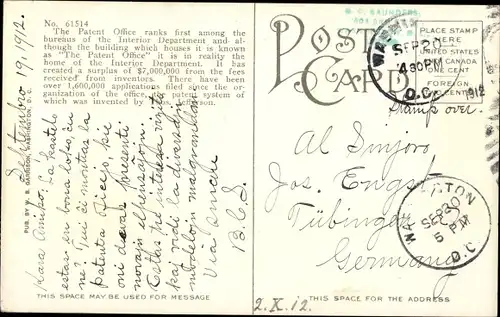 No. 61514
The Patent Office ranks first among the
bureaus of the Interior Department and al-
though the building which houses it is known
as "The Patent Office" it is in reality the
home of the Interior Department. It has
created a surplus of $7,000,000 from the fees
received from inventors. There have been
over 1,600,000 applications filed since the or-
ganization of the office, the patent system of
which was invented by
PUB. BY W. B. GARRISON, WASHINGTON, D.C.
Septembro 19, 1912.
Kara Amiko. La kastelo
estas en bona loko, ĉu
ne? Tiuj ĉi montras la
patenta oficejo, kiu
oni devas prezenti
Estas tre interesa viziti
kaj vidi la diversajn
modelojn malgrandan
Via sincere
B. C. S.
THIS SPACE MAY BE USED FOR MESSAGE
POST CARD
PLACE STAMP
HERE
UNITED STATES
AND CANADA
ONE CENT
FOREIGN
TWO CENTS
SEP 20
4 30 PM
D.C.
1912
Stamp over.
Al Sinjoro
Jos. Engst
Tübingen
Germany
SEP 20
5 PM
D.C.
2. X. 12.
THIS SPACE IS FOR THE ADDRESS